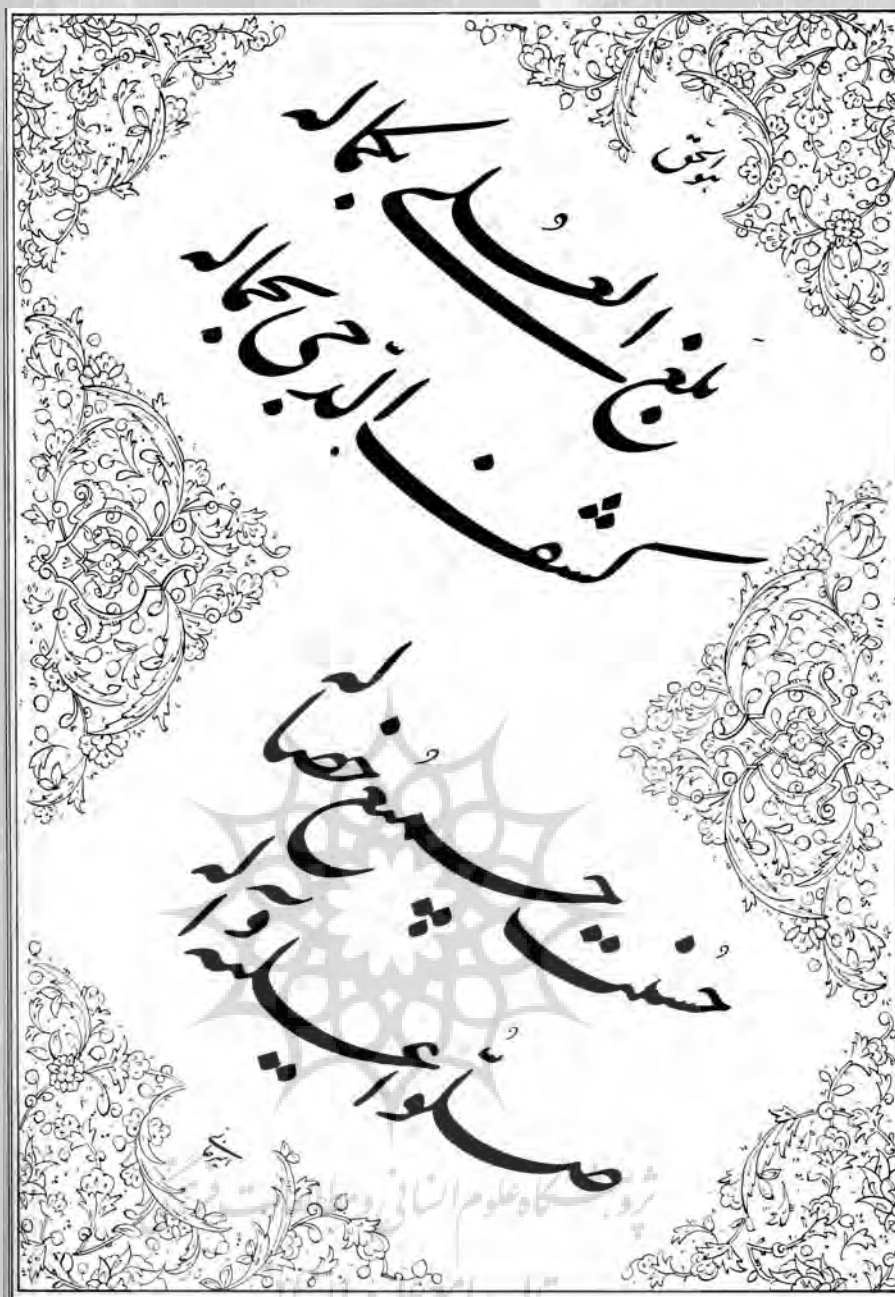 هوالحق
بلغ العُلی بکماله
کشف الدّجی بجماله
حُسنت جمیعُ خصاله
صلّوُا علیه و آله
پژوهشگاه علوم انسانی و مطالعات فرهنگی